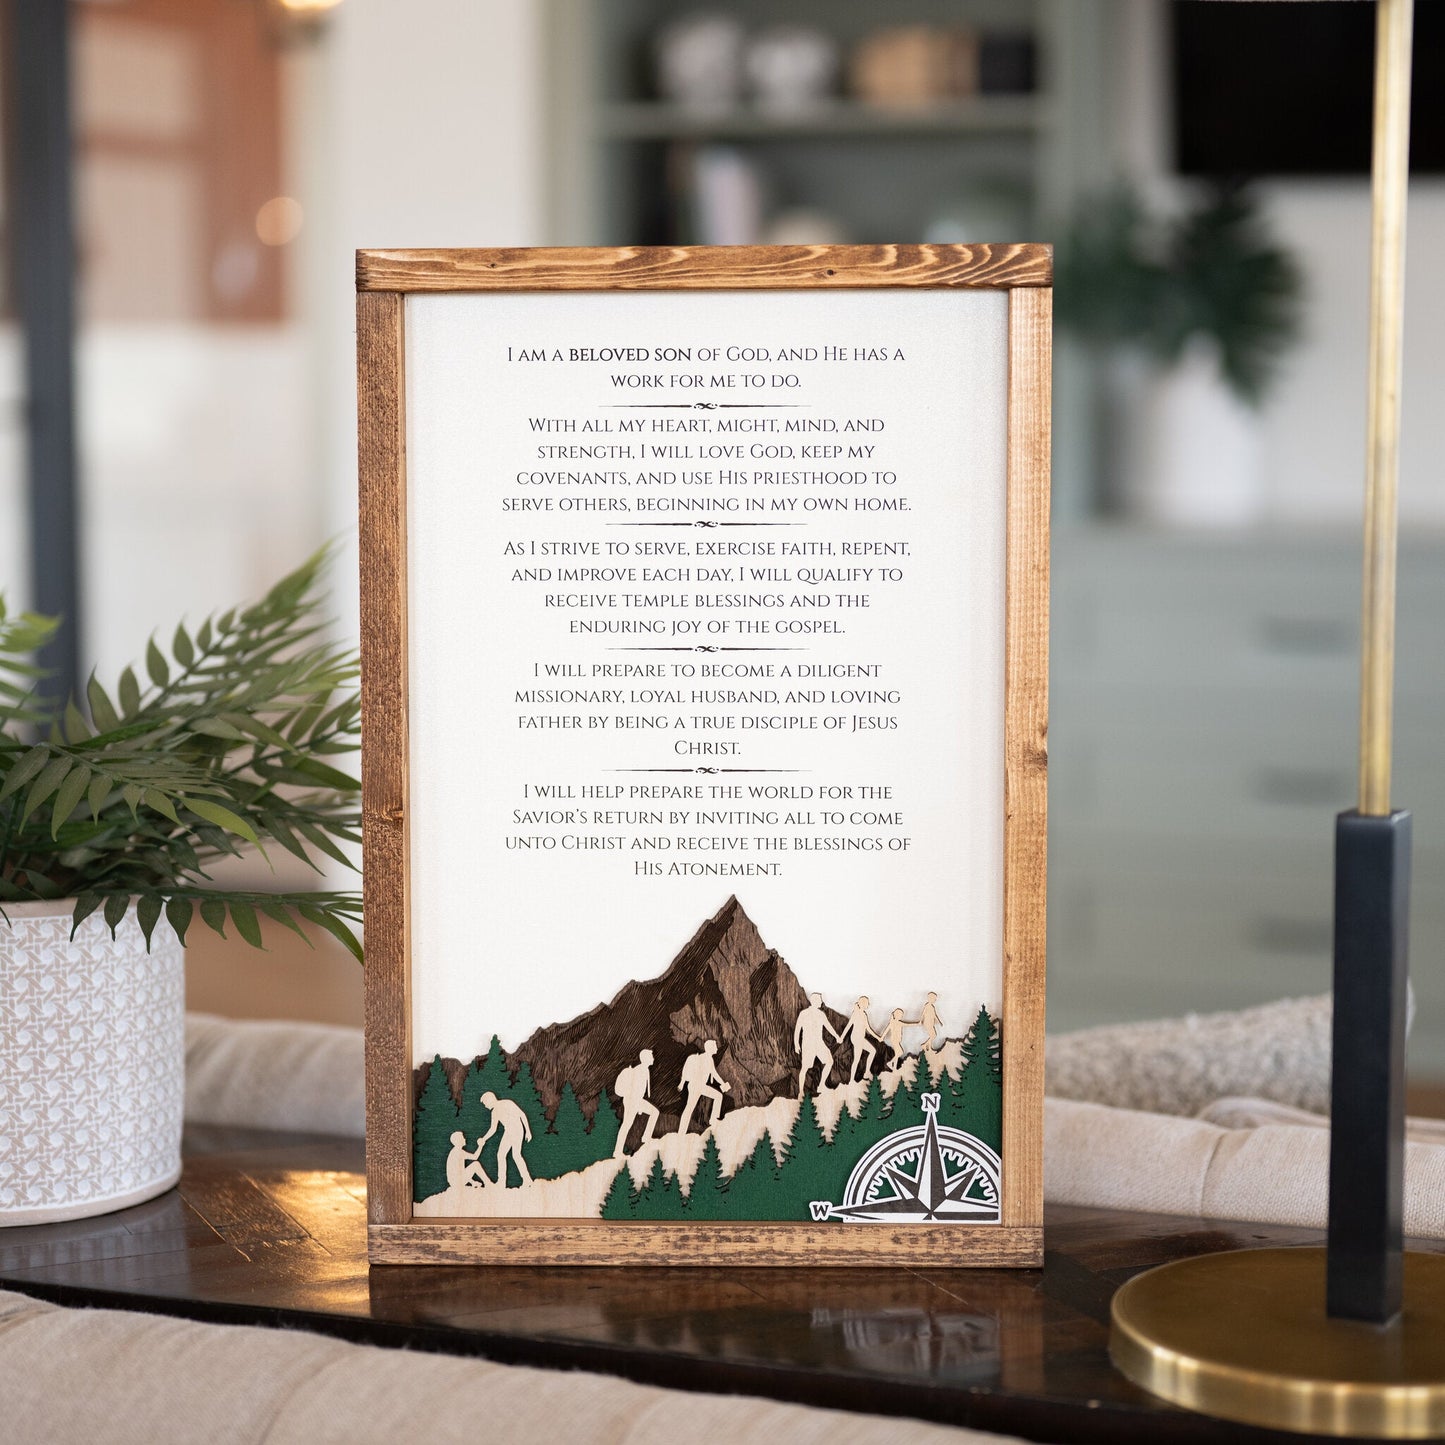 I AM A BELOVED SON OF GOD, AND HE HAS A
WORK FOR ME TO DO.
WITH ALL MY HEART, MIGHT, MIND, AND
STRENGTH, I WILL LOVE GOD, KEEP MY
COVENANTS, AND USE HIS PRIESTHOOD TO
SERVE OTHERS, BEGINNING IN MY OWN HOME.
AS I STRIVE TO SERVE, EXERCISE FAITH, REPENT,
AND IMPROVE EACH DAY, I WILL QUALIFY TO
RECEIVE TEMPLE BLESSINGS AND THE
ENDURING JOY OF THE GOSPEL.
I WILL PREPARE TO BECOME A DILIGENT
MISSIONARY, LOYAL HUSBAND, AND LOVING
FATHER BY BEING A TRUE DISCIPLE OF JESUS
CHRIST.
I WILL HELP PREPARE THE WORLD FOR THE
SAVIOR'S RETURN BY INVITING ALL TO COME
UNTO CHRIST AND RECEIVE THE BLESSINGS OF
HIS ATONEMENT.
N
W